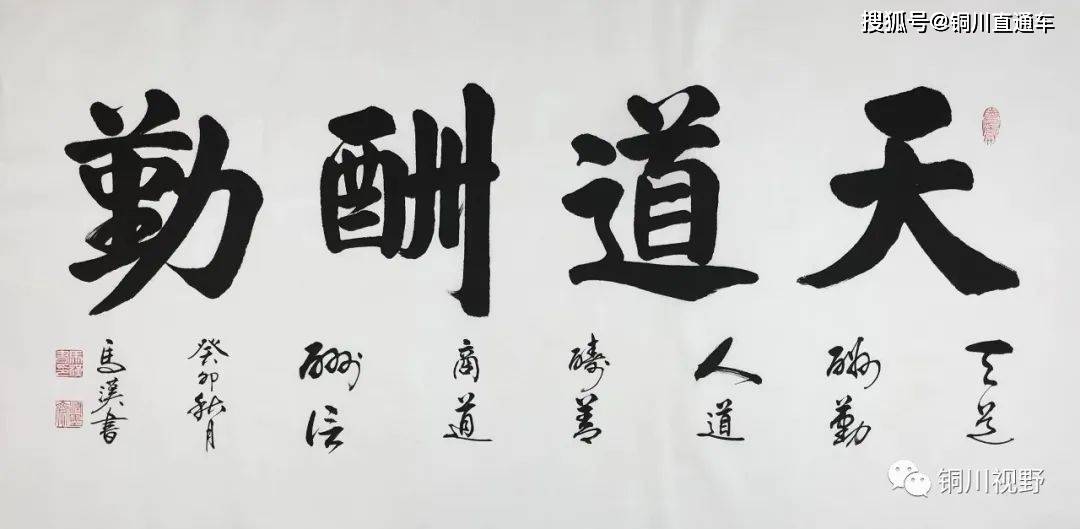 搜狐号@铜川直通车
天道酬勤
天道
酬勤
人道
醻善
商道
酬信
癸卯秋月
馬漢書
铜川视野